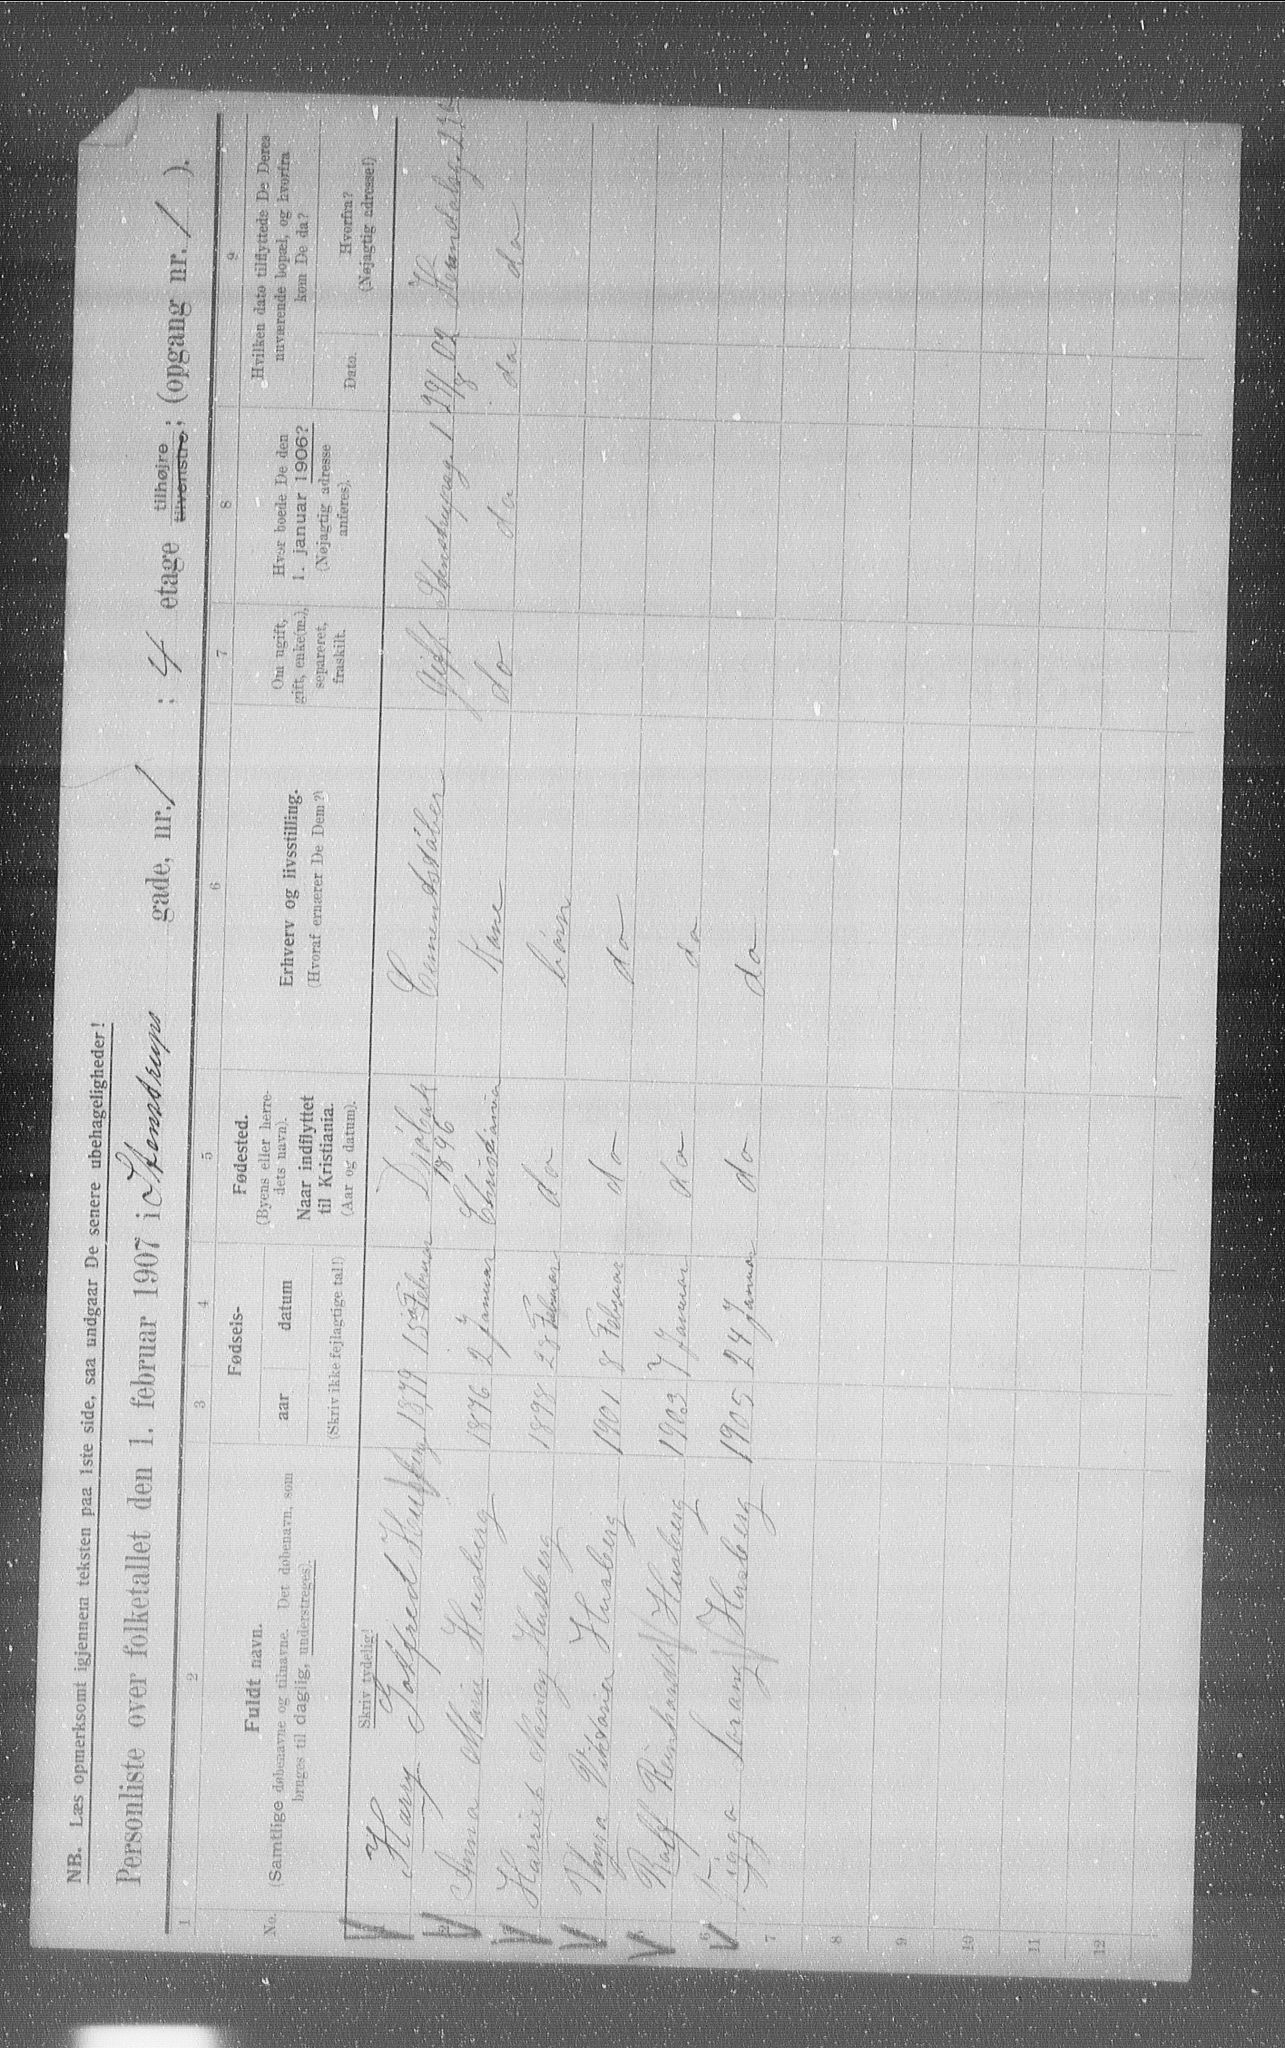 NB. Læs opmerksomt igjennem teksten paa 1ste side, saa undgaar De senere ubehageligheder!
Personliste over folketallet den 1. februar 1907 i Stenstrups gade, nr. 1 ; 4 etage tilhøjre tilvenstre; (opgang nr. 1 ).
1 2 3 4 5 6 7 8 9
No. Fuldt navn. (Samtlige døbenavne og tilnavne. Det døbenavn, som bruges til daglig, understreges). Skriv tydelig!
Fødsels- aar datum (Skriv ikke fejlagtige tal!)
Fødested. (Byens eller herredets navn). Naar indflyttet til Kristiania. (Aar og datum).
Erhverv og livsstilling. (Hvoraf ernærer De Dem?)
Om ugift, gift, enke(m.), separeret, fraskilt.
Hvor boede De den 1. januar 1906? (Nøjagtig adresse anføres).
Hvilken dato tilflyttede De Deres nuværende bopæl, og hvorfra kom De da? Dato. Hvorfra? (Nøjagtig adresse!)
1 Harry Godfred Husberg 1879 15 Februar Drøbak 1896 Cementstøber gift Stenstrupsg. 1 29/8 02
2 Anna Marie Husberg 1876 2 Januar Christiania Kone do do do do
Harriet Husberg 1898 28 Februar do barn
Thyra Viktoria Husberg 1901 8 Februar do do
Ralf Reinhardt Husberg 1903 7 Januar do do
6 Viggo Husberg 1905 24 Januar do do
7
8
9
10
11
12